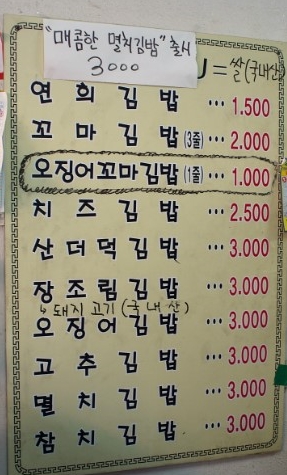 "매콤한 멸치김밥" 출시
3000
U = 쌀(국내산)
연희김밥 ··· 1.500
꼬마김밥(3줄) ··· 2.000
오징어꼬마김밥(1줄) ··· 1.000
치즈김밥 ··· 2.500
산더덕김밥 ··· 3.000
장조림김밥 ··· 3.000
↳ 돼지고기(국내산)
오징어김밥 ··· 3.000
고추김밥 ··· 3.000
멸치김밥 ··· 3.000
참치김밥 ··· 3.000